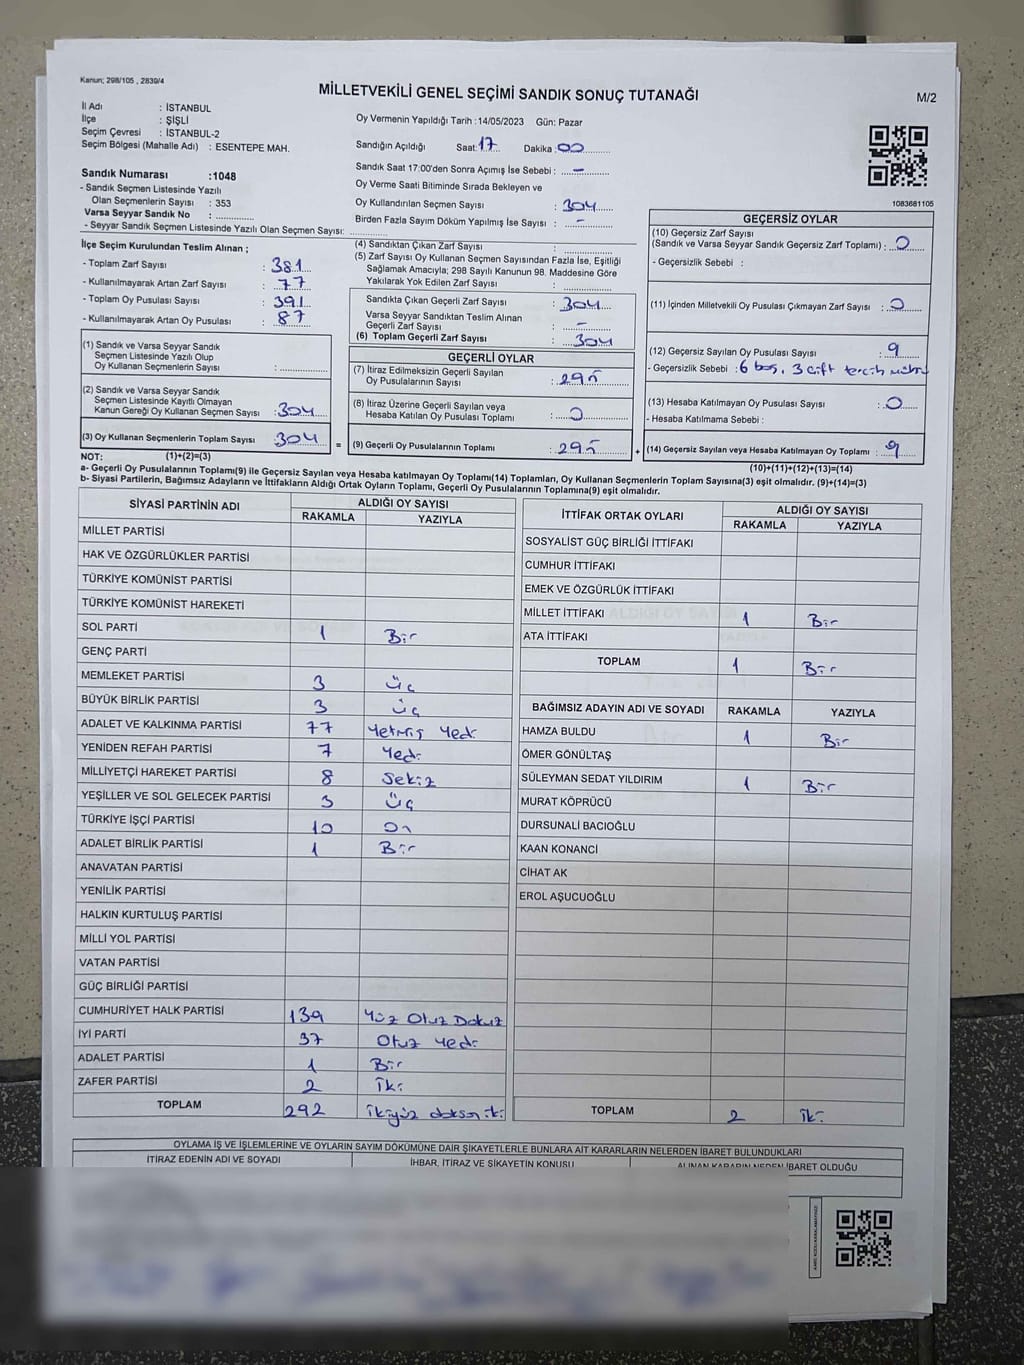 Kanun; 298/105 , 2839/4
MİLLETVEKİLİ GENEL SEÇİMİ SANDIK SONUÇ TUTANAĞI
M/2
İl Adı : İSTANBUL
İlçe : ŞİŞLİ
Seçim Çevresi : İSTANBUL-2
Seçim Bölgesi (Mahalle Adı) : ESENTEPE MAH.
Oy Vermenin Yapıldığı Tarih :14/05/2023 Gün: Pazar
Sandığın Açıldığı Saat: 17 Dakika: 00
Sandık Saat 17:00'den Sonra Açımış İse Sebebi : -
Oy Verme Saati Bitiminde Sırada Bekleyen ve
Oy Kullandırılan Seçmen Sayısı : 304
Birden Fazla Sayım Döküm Yapılmış İse Sayısı : -
1083681105
Sandık Numarası :1048
- Sandık Seçmen Listesinde Yazılı
Olan Seçmenlerin Sayısı : 353
Varsa Seyyar Sandık No :
- Seyyar Sandık Seçmen Listesinde Yazılı Olan Seçmen Sayısı:
İlçe Seçim Kurulundan Teslim Alınan ;
- Toplam Zarf Sayısı : 381
- Kullanılmayarak Artan Zarf Sayısı : 77
- Toplam Oy Pusulası Sayısı : 391
- Kullanılmayarak Artan Oy Pusulası : 87
(1) Sandık ve Varsa Seyyar Sandık
Seçmen Listesinde Yazılı Olup
Oy Kullanan Seçmen Sayısı :
(2) Sandık ve Varsa Seyyar Sandık
Seçmen Listesinde Kayıtlı Olmayan
Kanun Gereği Oy Kullanan Seçmen Sayısı : 304
(3) Oy Kullanan Seçmenlerin Toplam Sayısı : 304
(4) Sandıktan Çıkan Zarf Sayısı :
(5) Zarf Sayısı Oy Kullanan Seçmen Sayısından Fazla İse, Eşitliği
Sağlamak Amacıyla; 298 Sayılı Kanunun 98. Maddesine Göre
Yakılarak Yok Edilen Zarf Sayısı :
Sandıkta Çıkan Geçerli Zarf Sayısı : 304
Varsa Seyyar Sandıktan Teslim Alınan
Geçerli Zarf Sayısı : -
(6) Toplam Geçerli Zarf Sayısı : 304
GEÇERLİ OYLAR
(7) İtiraz Edilmeksizin Geçerli Sayılan
Oy Pusulalarının Sayısı : 295
(8) İtiraz Üzerine Geçerli Sayılan veya
Hesaba Katılan Oy Pusulaları Toplamı : 0
= (9) Geçerli Oy Pusulalarının Toplamı : 295 +
GEÇERSİZ OYLAR
(10) Geçersiz Zarf Sayısı
(Sandık ve Varsa Seyyar Sandık Geçersiz Zarf Toplamı) : 0
- Geçersizlik Sebebi :
(11) İçinden Milletvekili Oy Pusulası Çıkmayan Zarf Sayısı : 0
(12) Geçersiz Sayılan Oy Pusulası Sayısı : 9
- Geçersizlik Sebebi : 6 boş, 3 çift tercih mührü
(13) Hesaba Katılmayan Oy Pusulası Sayısı : 0
- Hesaba Katılmama Sebebi :
(14) Geçersiz Sayılan veya Hesaba Katılmayan Oy Toplamı : 9
NOT: (1)+(2)=(3)
(10)+(11)+(12)+(13)=(14)
a- Geçerli Oy Pusulalarının Toplamı(9) ile Geçersiz Sayılan veya Hesaba katılmayan Oy Toplamı(14) Toplamları, Oy Kullanan Seçmenlerin Toplam Sayısına(3) eşit olmalıdır. (9)+(14)=(3)
b- Siyasi Partilerin, Bağımsız Adayların ve İttifakların Aldığı Ortak Oyların Toplamı, Geçerli Oy Pusulalarının Toplamına(9) eşit olmalıdır.
SİYASİ PARTİNİN ADI ALDIĞI OY SAYISI
RAKAMLA YAZIYLA
MİLLET PARTİSİ
HAK VE ÖZGÜRLÜKLER PARTİSİ
TÜRKİYE KOMÜNİST PARTİSİ
TÜRKİYE KOMÜNİST HAREKETİ
SOL PARTİ 1 Bir
GENÇ PARTİ
MEMLEKET PARTİSİ 3 Üç
BÜYÜK BİRLİK PARTİSİ 3 Üç
ADALET VE KALKINMA PARTİSİ 77 Yetmiş Yedi
YENİDEN REFAH PARTİSİ 7 Yedi
MİLLİYETÇİ HAREKET PARTİSİ 8 Sekiz
YEŞİLLER VE SOL GELECEK PARTİSİ 3 Üç
TÜRKİYE İŞÇİ PARTİSİ 10 On
ADALET BİRLİK PARTİSİ 1 Bir
ANAVATAN PARTİSİ
YENİLİK PARTİSİ
HALKIN KURTULUŞ PARTİSİ
MİLLİ YOL PARTİSİ
VATAN PARTİSİ
GÜÇ BİRLİĞİ PARTİSİ
CUMHURİYET HALK PARTİSİ 139 Yüz Otuz Dokuz
İYİ PARTİ 37 Otuz Yedi
ADALET PARTİSİ 1 Bir
ZAFER PARTİSİ 2 İki
TOPLAM 292 İkiyüz doksan iki
İTTİFAK ORTAK OYLARI ALDIĞI OY SAYISI
RAKAMLA YAZIYLA
SOSYALİST GÜÇ BİRLİĞİ İTTİFAKI
CUMHUR İTTİFAKI
EMEK VE ÖZGÜRLÜK İTTİFAKI
MİLLET İTTİFAKI 1 Bir
ATA İTTİFAKI
TOPLAM 1 Bir
BAĞIMSIZ ADAYIN ADI VE SOYADI RAKAMLA YAZIYLA
HAMZA BULDU 1 Bir
ÖMER GÖNÜLTAŞ
SÜLEYMAN SEDAT YILDIRIM 1 Bir
MURAT KÖPRÜCÜ
DURSUNALİ BACIOĞLU
KAAN KONANCİ
CİHAT AK
EROL AŞUCUOĞLU
TOPLAM 2 İki
OYLAMA İŞ VE İŞLEMLERİNE VE OYLARIN SAYIM DÖKÜMÜNE DAİR ŞİKAYETLERLE BUNLARA AİT KARARLARIN NELERDEN İBARET BULUNDUKLARI
İTİRAZ EDENİN ADI VE SOYADI İHBAR, İTİRAZ VE ŞİKAYETİN KONUSU ALINAN KARARIN NEDEN İBARET OLDUĞU